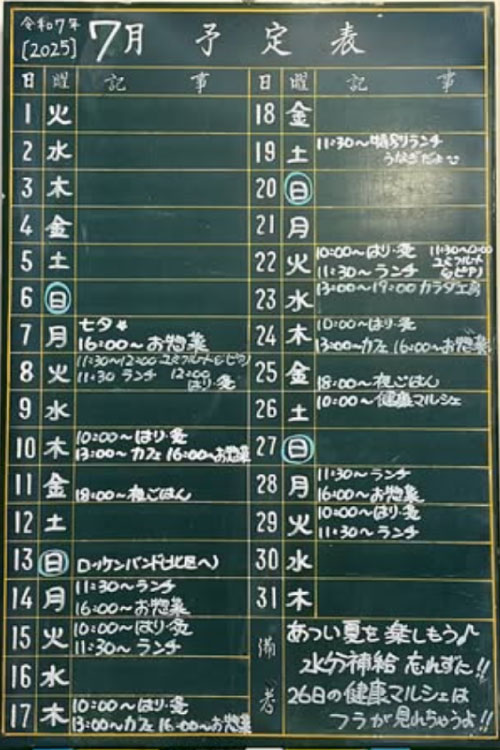 令和7年
[2025]
7月 予定表
日 曜 記事
1 火
2 水
3 木
4 金
5 土
6 日
7 月 七夕
16:00〜お惣菜
8 火 11:30〜12:00
11:30 ランチ 12:00
はり・灸
9 水
10 木 10:00〜はり・灸
13:00〜カフェ 16:00〜お惣菜
11 金 18:00〜夜ごはん
12 土
13 日 ロッケンバンド(北区へ)
14 月 11:30〜ランチ
16:00〜お惣菜
15 火 10:00〜はり・灸
11:30〜ランチ
16 水
17 木 10:00〜はり・灸
13:00〜カフェ 16:00〜お惣菜
日 曜 記事
18 金
19 土 11:30〜特別ランチ
うなぎだよ〜
20 日
21 月
22 火 10:00〜はり・灸 11:30〜
11:30〜ランチ
23 水 13:00〜19:00 カラダ工房
24 木 10:00〜はり・灸
13:00〜カフェ 16:00〜お惣菜
25 金 18:00〜夜ごはん
26 土 10:00〜健康マルシェ
27 日
28 月 11:30〜ランチ
16:00〜お惣菜
29 火 10:00〜はり・灸
11:30〜ランチ
30 水
31 木
備考
あつい夏を楽しもう♪
水分補給忘れずに!!
26日の健康マルシェは
フラが見れちゃうよ!!